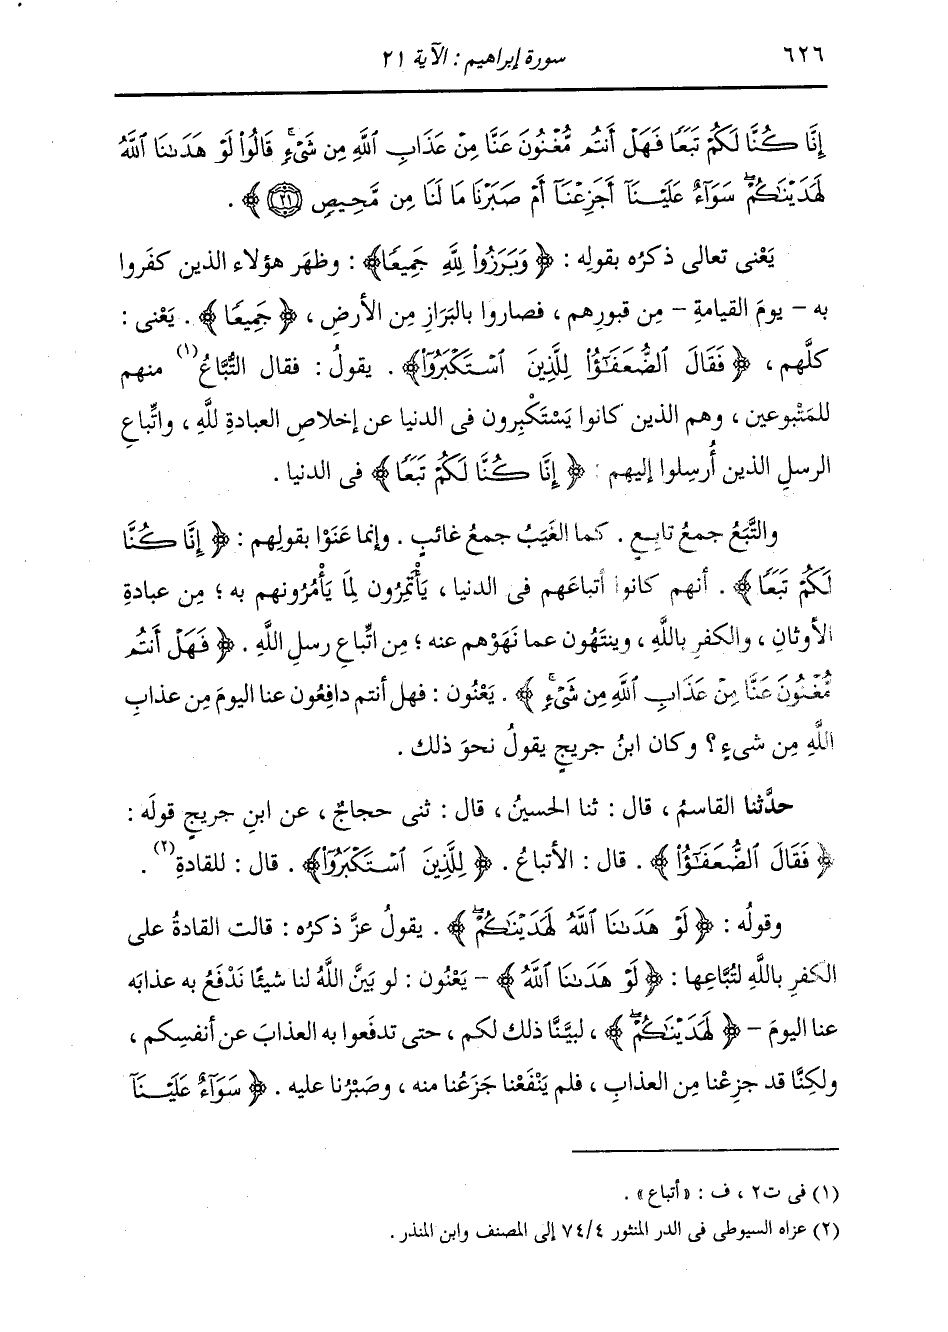 ٦٢٦
سورة إبراهيم : الآية ٢١
إِنَّا كُنَّا لَكُمْ تَبَعًا فَهَلْ أَنتُم مُّغْنُونَ عَنَّا مِنْ عَذَابِ ٱللَّهِ مِن شَىْءٍۚ قَالُوا۟ لَوْ هَدَىٰنَا ٱللَّهُ
لَهَدَيْنَٰكُمْۖ سَوَآءٌ عَلَيْنَآ أَجَزِعْنَآ أَمْ صَبَرْنَا مَا لَنَا مِن مَّحِيصٍ (٢١) ﴾ .
يَعْنى تعالى ذكرُه بقولِه : ﴿ وَبَرَزُوا۟ لِلَّهِ جَمِيعًا﴾ : وظهَر هؤلاء الذين كفَروا
به – يومَ القيامةِ – مِن قبورِهم ، فصاروا بالبَرَازِ مِن الأرضِ ، ﴿ جَمِيعًا ﴾ . يَعْنى :
كلَّهم ، ﴿ فَقَالَ ٱلضُّعَفَٰٓؤُا۟ لِلَّذِينَ ٱسْتَكْبَرُوٓا۟﴾ . يقولُ : فقال التُّبَّاعُ(١) منهم
للمَتْبوعين ، وهم الذين كانوا يَسْتَكْبِرون فى الدنيا عن إخلاصِ العبادةِ للَّهِ ، واتِّباعِ
الرسلِ الذين أُرسِلوا إليهم : ﴿ إِنَّا كُنَّا لَكُمْ تَبَعًا ﴾ فى الدنيا .
والتَّبَعُ جمعُ تابِعٍ . كما الغَيَبُ جمعُ غائبٍ . وإنما عَنَوْا بقولِهم : ﴿ إِنَّا كُنَّا
لَكُمْ تَبَعًا ﴾ . أنهم كانوا أتباعَهم فى الدنيا ، يَأْتَمِرُون لِمَا يَأْمُرُونهم به ؛ مِن عبادةِ
الأوثانِ ، والكفرِ باللَّهِ ، وينتَهُون عما نَهَوْهم عنه ؛ مِن اتِّباعِ رسلِ اللَّهِ . ﴿ فَهَلْ أَنتُم
مُّغْنُونَ عَنَّا مِنْ عَذَابِ ٱللَّهِ مِن شَىْءٍۚ ﴾ . يَعْنُون : فهل أنتم دافِعُون عنا اليومَ مِن عذابِ
اللَّهِ مِن شىءٍ ؟ وكان ابنُ جريجٍ يقولُ نحوَ ذلك .
حدَّثنا القاسمُ ، قال : ثنا الحسينُ ، قال : ثنى حجاجٌ ، عن ابنِ جريجٍ قولَه :
﴿ فَقَالَ ٱلضُّعَفَٰٓؤُا۟ ﴾ . قال : الأتباعُ . ﴿ لِلَّذِينَ ٱسْتَكْبَرُوٓا۟﴾ . قال : للقادةِ(٢) .
وقولُه : ﴿ لَوْ هَدَىٰنَا ٱللَّهُ لَهَدَيْنَٰكُمْۖ ﴾ . يقولُ عزَّ ذكرُه : قالت القادةُ على
الكفرِ باللَّهِ لتُبَّاعِها : ﴿ لَوْ هَدَىٰنَا ٱللَّهُ ﴾ – يَعْنُون : لو بَيَّنَ اللَّهُ لنا شيئًا نَدْفَعُ به عذابَه
عنا اليومَ – ﴿ لَهَدَيْنَٰكُمْۖ ﴾ ، لبيَّنَّا ذلك لكم ، حتى تدفَعوا به العذابَ عن أنفسِكم ،
ولكِنَّا قد جزِعْنا مِن العذابِ ، فلم يَنْفَعْنا جَزَعُنا منه ، وصَبْرُنا عليه . ﴿ سَوَآءٌ عَلَيْنَآ
(١) فى ت٢ ، ف : «أتباع» .
(٢) عزاه السيوطى فى الدر المنثور ٧٤/٤ إلى المصنف وابن المنذر .